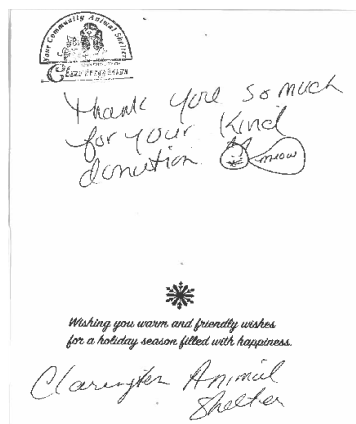 Your Community Animal Shelter
Thank you so much
for your kind
donation
meow
Wishing you warm and friendly wishes
for a holiday season filled with happiness.
Clarington Animal
Shelter